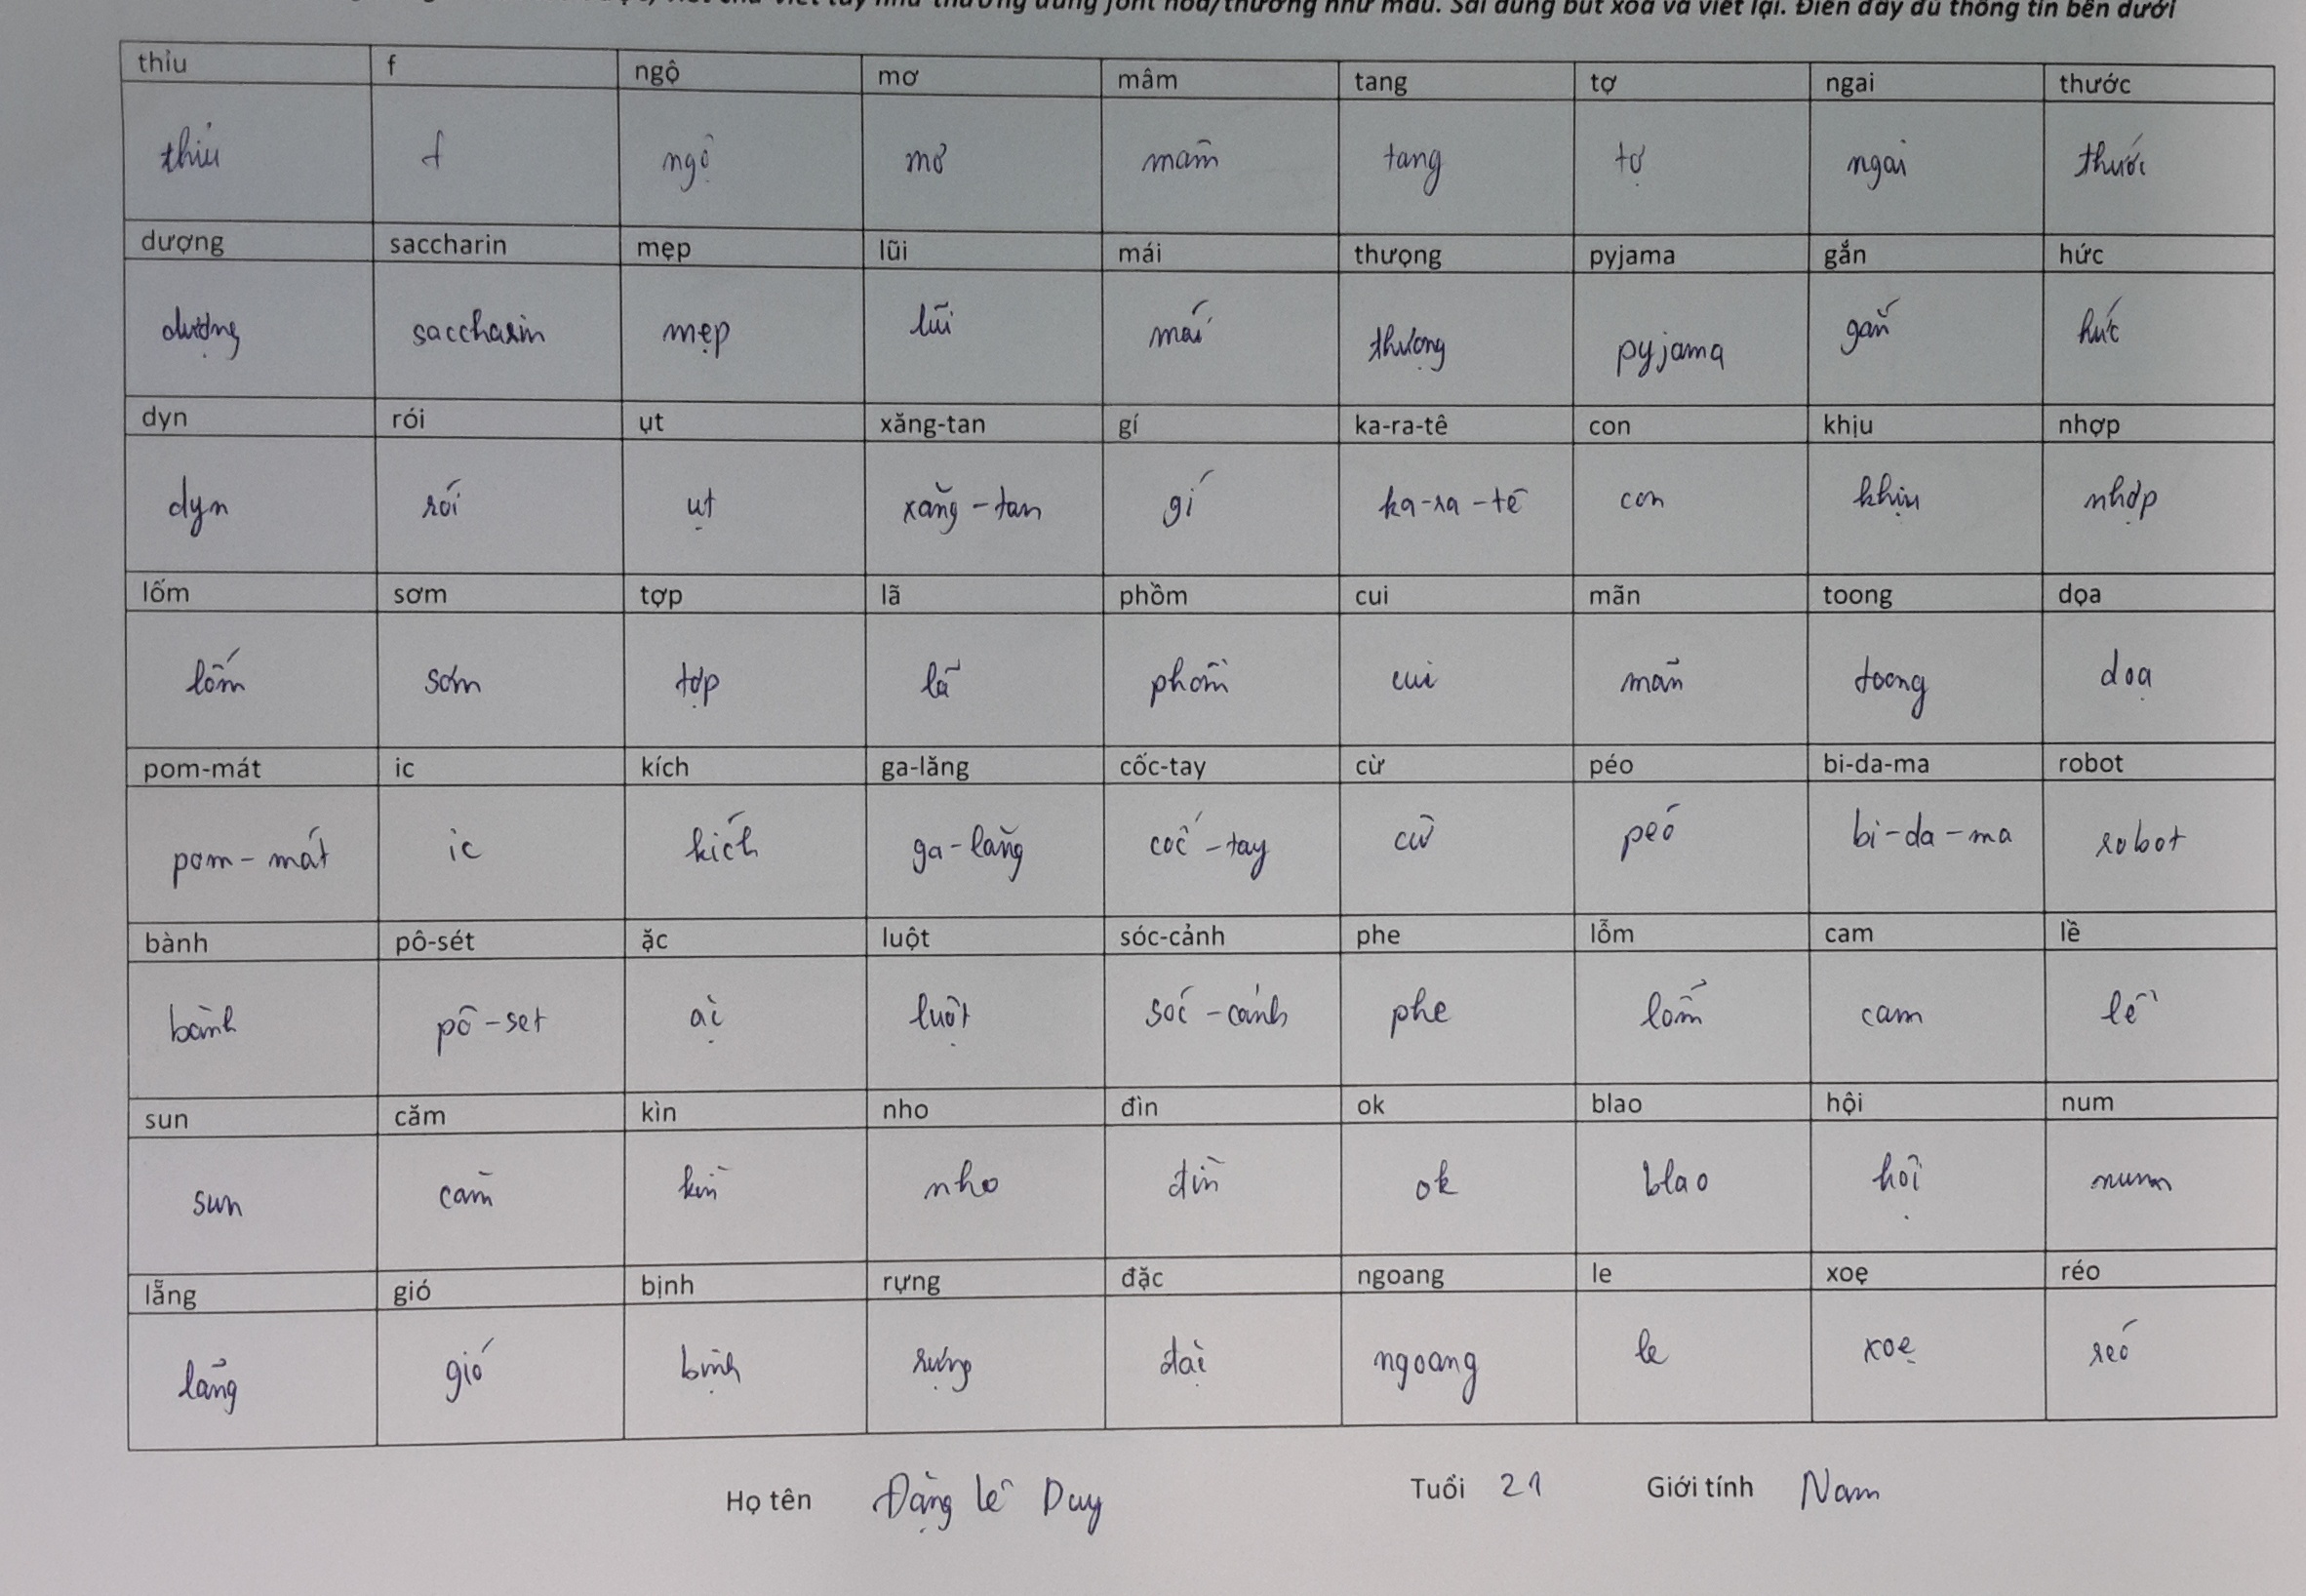 như thường dùng font hoa/thường như mẫu. Sai dùng bút xoá và viết lại. Điền đầy đủ thông tin bên dưới
thỉu f ngộ mơ mâm tang tợ ngai thước
thỉu f ngộ mơ mâm tang tợ ngai thước
dượng saccharin mẹp lũi mái thưọng pyjama gắn hức
dượng saccharin mẹp lũi mái thượng pyjama gắn hức
dyn rói ụt xăng-tan gí ka-ra-tê con khịu nhợp
dyn rói ụt xăng-tan gí ka-ra-tê con khịu nhợp
lốm sơm tợp lã phồm cui mãn toong dọa
lốm sơm tợp lã phồm cui mãn toong doạ
pom-mát ic kích ga-lăng cốc-tay cừ péo bi-da-ma robot
pom-mát ic kích ga-lăng cốc-tay cừ péo bi-da-ma robot
bành pô-sét ặc luột sóc-cảnh phe lỗm cam lề
bành pô-set ặc luột sóc-cảnh phe lỗm cam lề
sun căm kìn nho đìn ok blao hội num
sun căm kìn nho đìn ok blao hội num
lẵng gió bịnh rựng đặc ngoang le xoẹ réo
lẵng gió bịnh rựng đặc ngoang le xoẹ réo
Họ tên Đặng Lê Duy Tuổi 21 Giới tính Nam